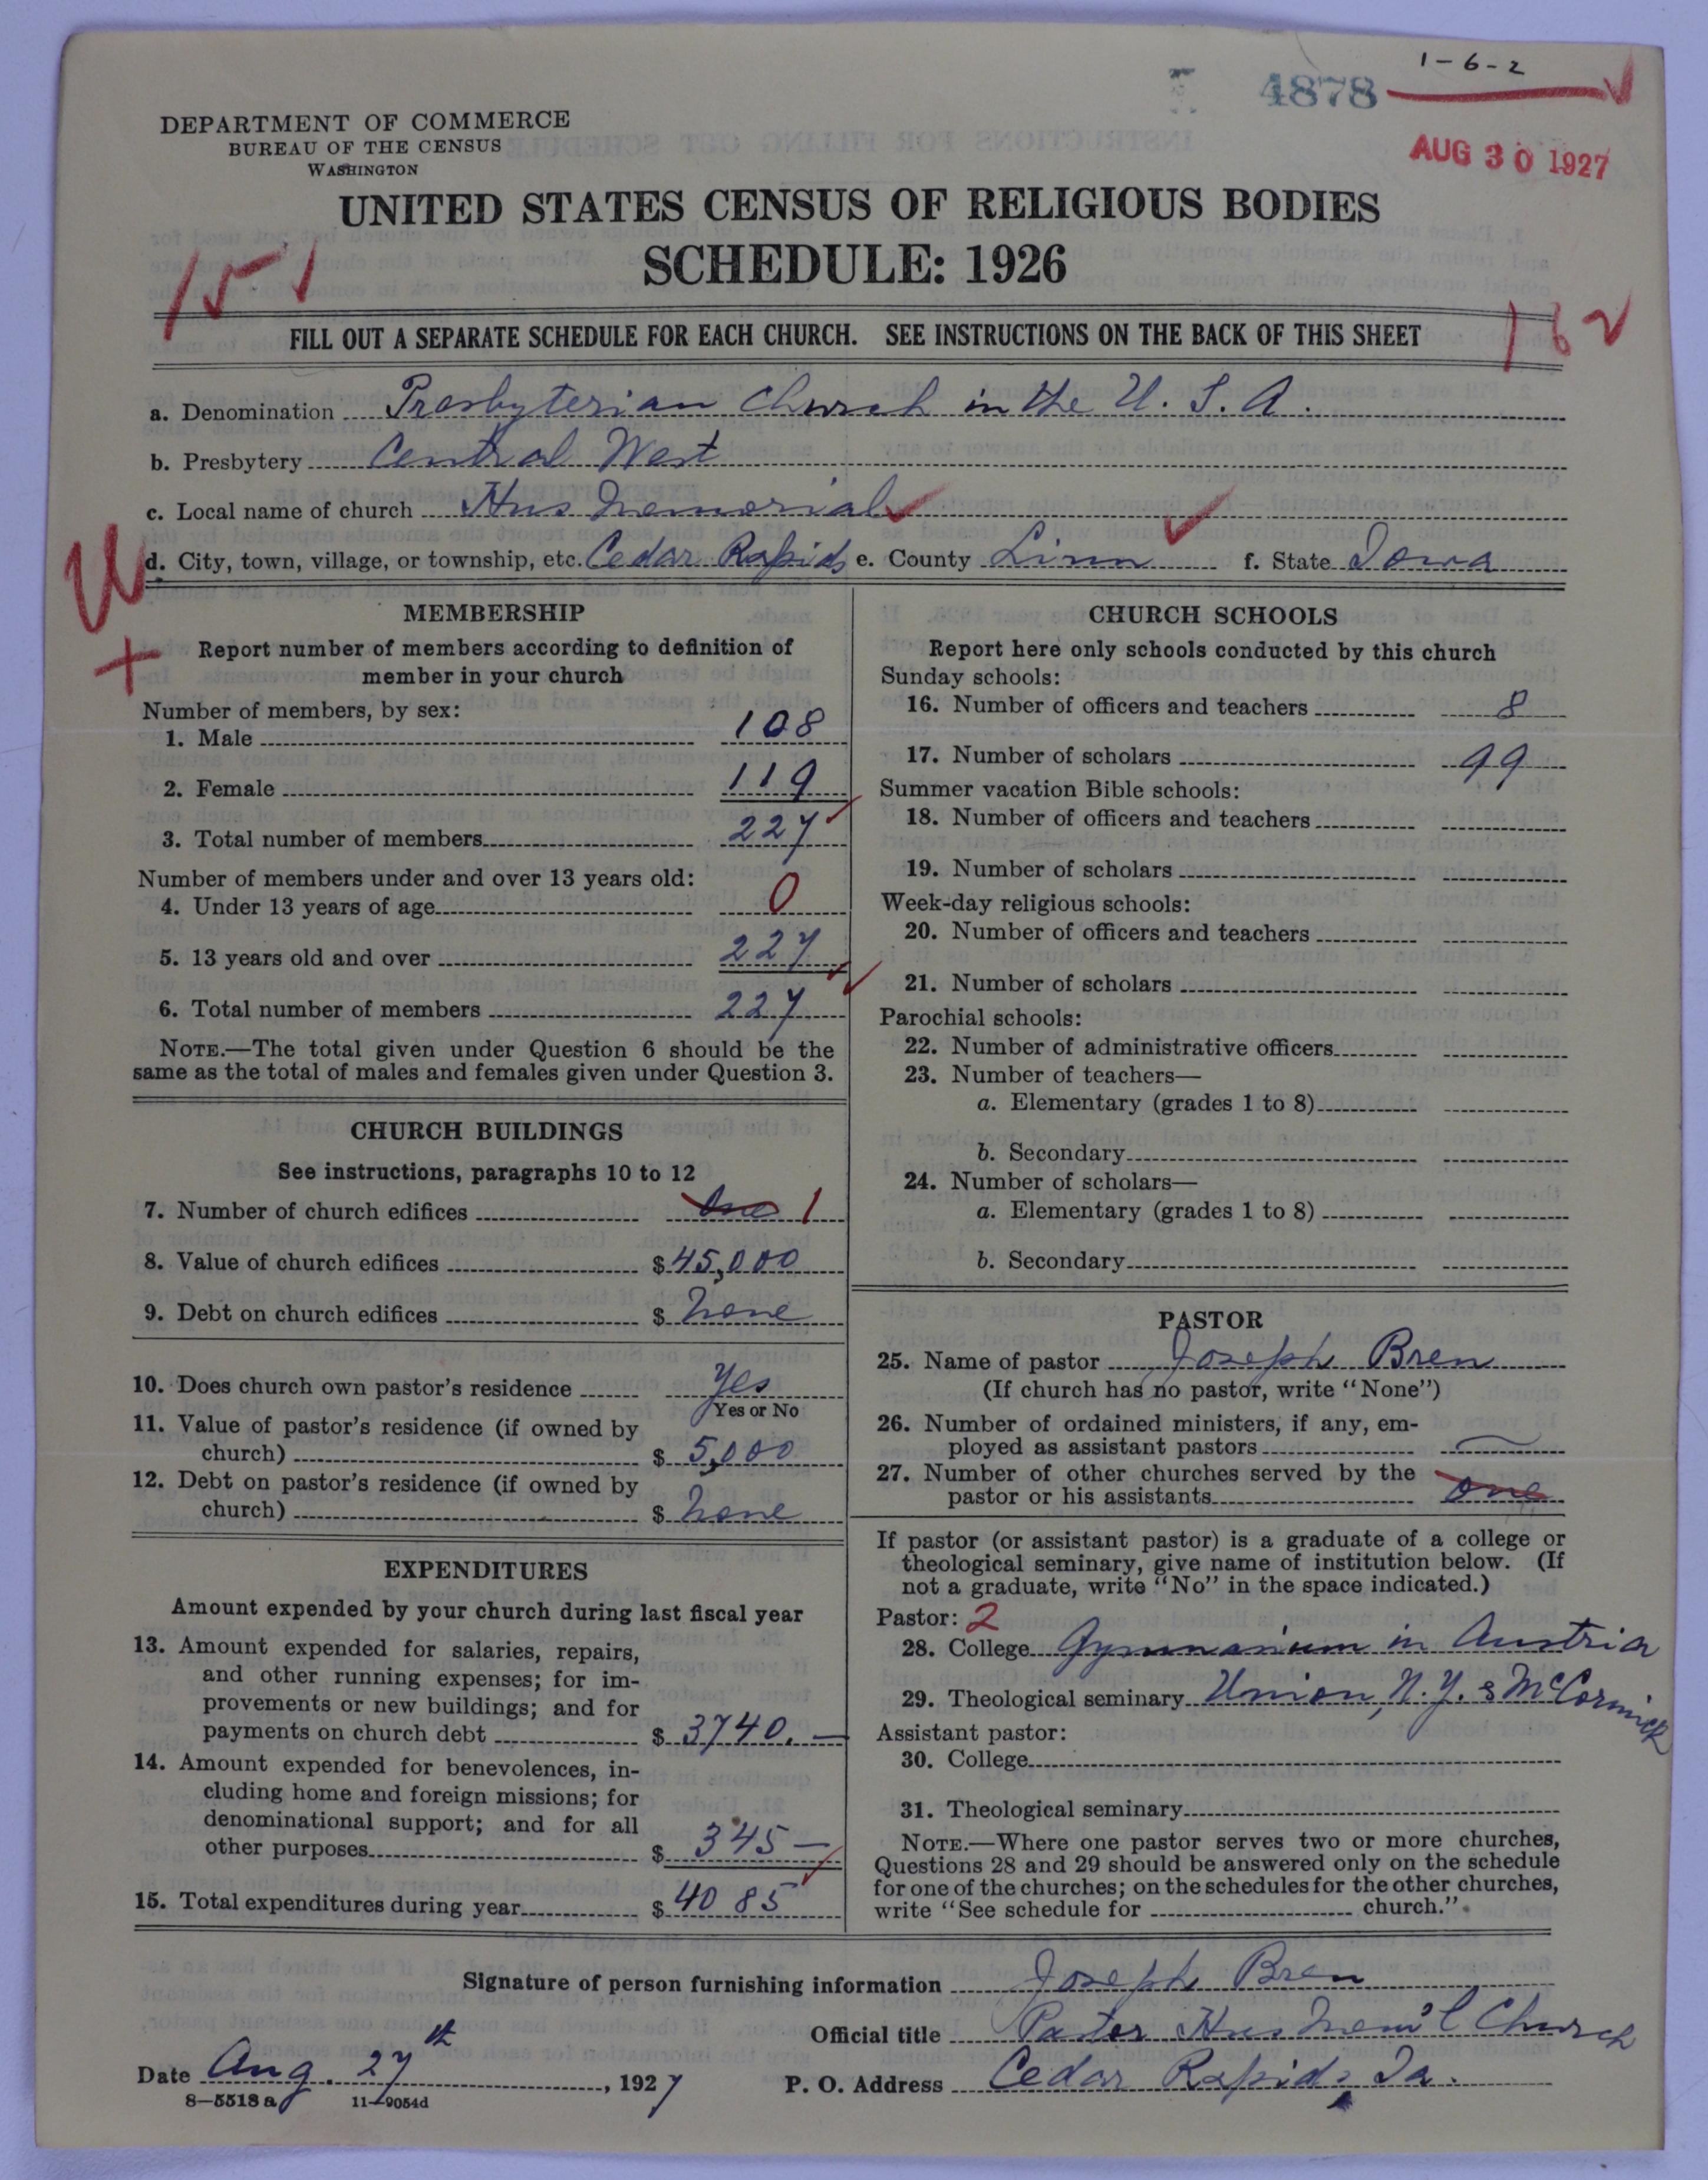 1-6-2
4878
AUG 30 1927
DEPARTMENT OF COMMERCE
BUREAU OF THE CENSUS
WASHINGTON
UNITED STATES CENSUS OF RELIGIOUS BODIES
SCHEDULE: 1926
151
162
FILL OUT A SEPARATE SCHEDULE FOR EACH CHURCH. SEE INSTRUCTIONS ON THE BACK OF THIS SHEET
a. Denomination Presbyterian Church in the U. S. A.
b. Presbytery Central West
c. Local name of church Hus Memorial
d. City, town, village, or township, etc. Cedar Rapids e. County Linn f. State Iowa
MEMBERSHIP
Report number of members according to definition of
member in your church
Number of members, by sex:
1. Male 108
2. Female 119
3. Total number of members 227
Number of members under and over 13 years old:
4. Under 13 years of age 0
5. 13 years old and over 227
6. Total number of members 227
NOTE.—The total given under Question 6 should be the
same as the total of males and females given under Question 3.
CHURCH BUILDINGS
See instructions, paragraphs 10 to 12
7. Number of church edifices One 1
8. Value of church edifices $ 45,000
9. Debt on church edifices $ None
10. Does church own pastor's residence Yes
Yes or No
11. Value of pastor's residence (if owned by
church) $ 5,000
12. Debt on pastor's residence (if owned by
church) $ None
EXPENDITURES
Amount expended by your church during last fiscal year
13. Amount expended for salaries, repairs,
and other running expenses; for im-
provements or new buildings; and for
payments on church debt $ 3740.—
14. Amount expended for benevolences, in-
cluding home and foreign missions; for
denominational support; and for all
other purposes $ 345—
15. Total expenditures during year $ 4085
CHURCH SCHOOLS
Report here only schools conducted by this church
Sunday schools:
16. Number of officers and teachers 8
17. Number of scholars 99
Summer vacation Bible schools:
18. Number of officers and teachers
19. Number of scholars
Week-day religious schools:
20. Number of officers and teachers
21. Number of scholars
Parochial schools:
22. Number of administrative officers
23. Number of teachers—
a. Elementary (grades 1 to 8)
b. Secondary
24. Number of scholars—
a. Elementary (grades 1 to 8)
b. Secondary
PASTOR
25. Name of pastor Joseph Bren
(If church has no pastor, write "None")
26. Number of ordained ministers, if any, em-
ployed as assistant pastors —
27. Number of other churches served by the
pastor or his assistants one
If pastor (or assistant pastor) is a graduate of a college or
theological seminary, give name of institution below. (If
not a graduate, write "No" in the space indicated.)
Pastor: 2
28. College Gymnasium in Austria
29. Theological seminary Union, N.Y. & McCormick
Assistant pastor:
30. College
31. Theological seminary
NOTE.—Where one pastor serves two or more churches,
Questions 28 and 29 should be answered only on the schedule
for one of the churches; on the schedules for the other churches,
write "See schedule for church."
Signature of person furnishing information Joseph Bren
Official title Pastor Hus Mem'l Church
Date Aug. 27th, 1927 P. O. Address Cedar Rapids, Ia.
8—5518 a 11—9054d